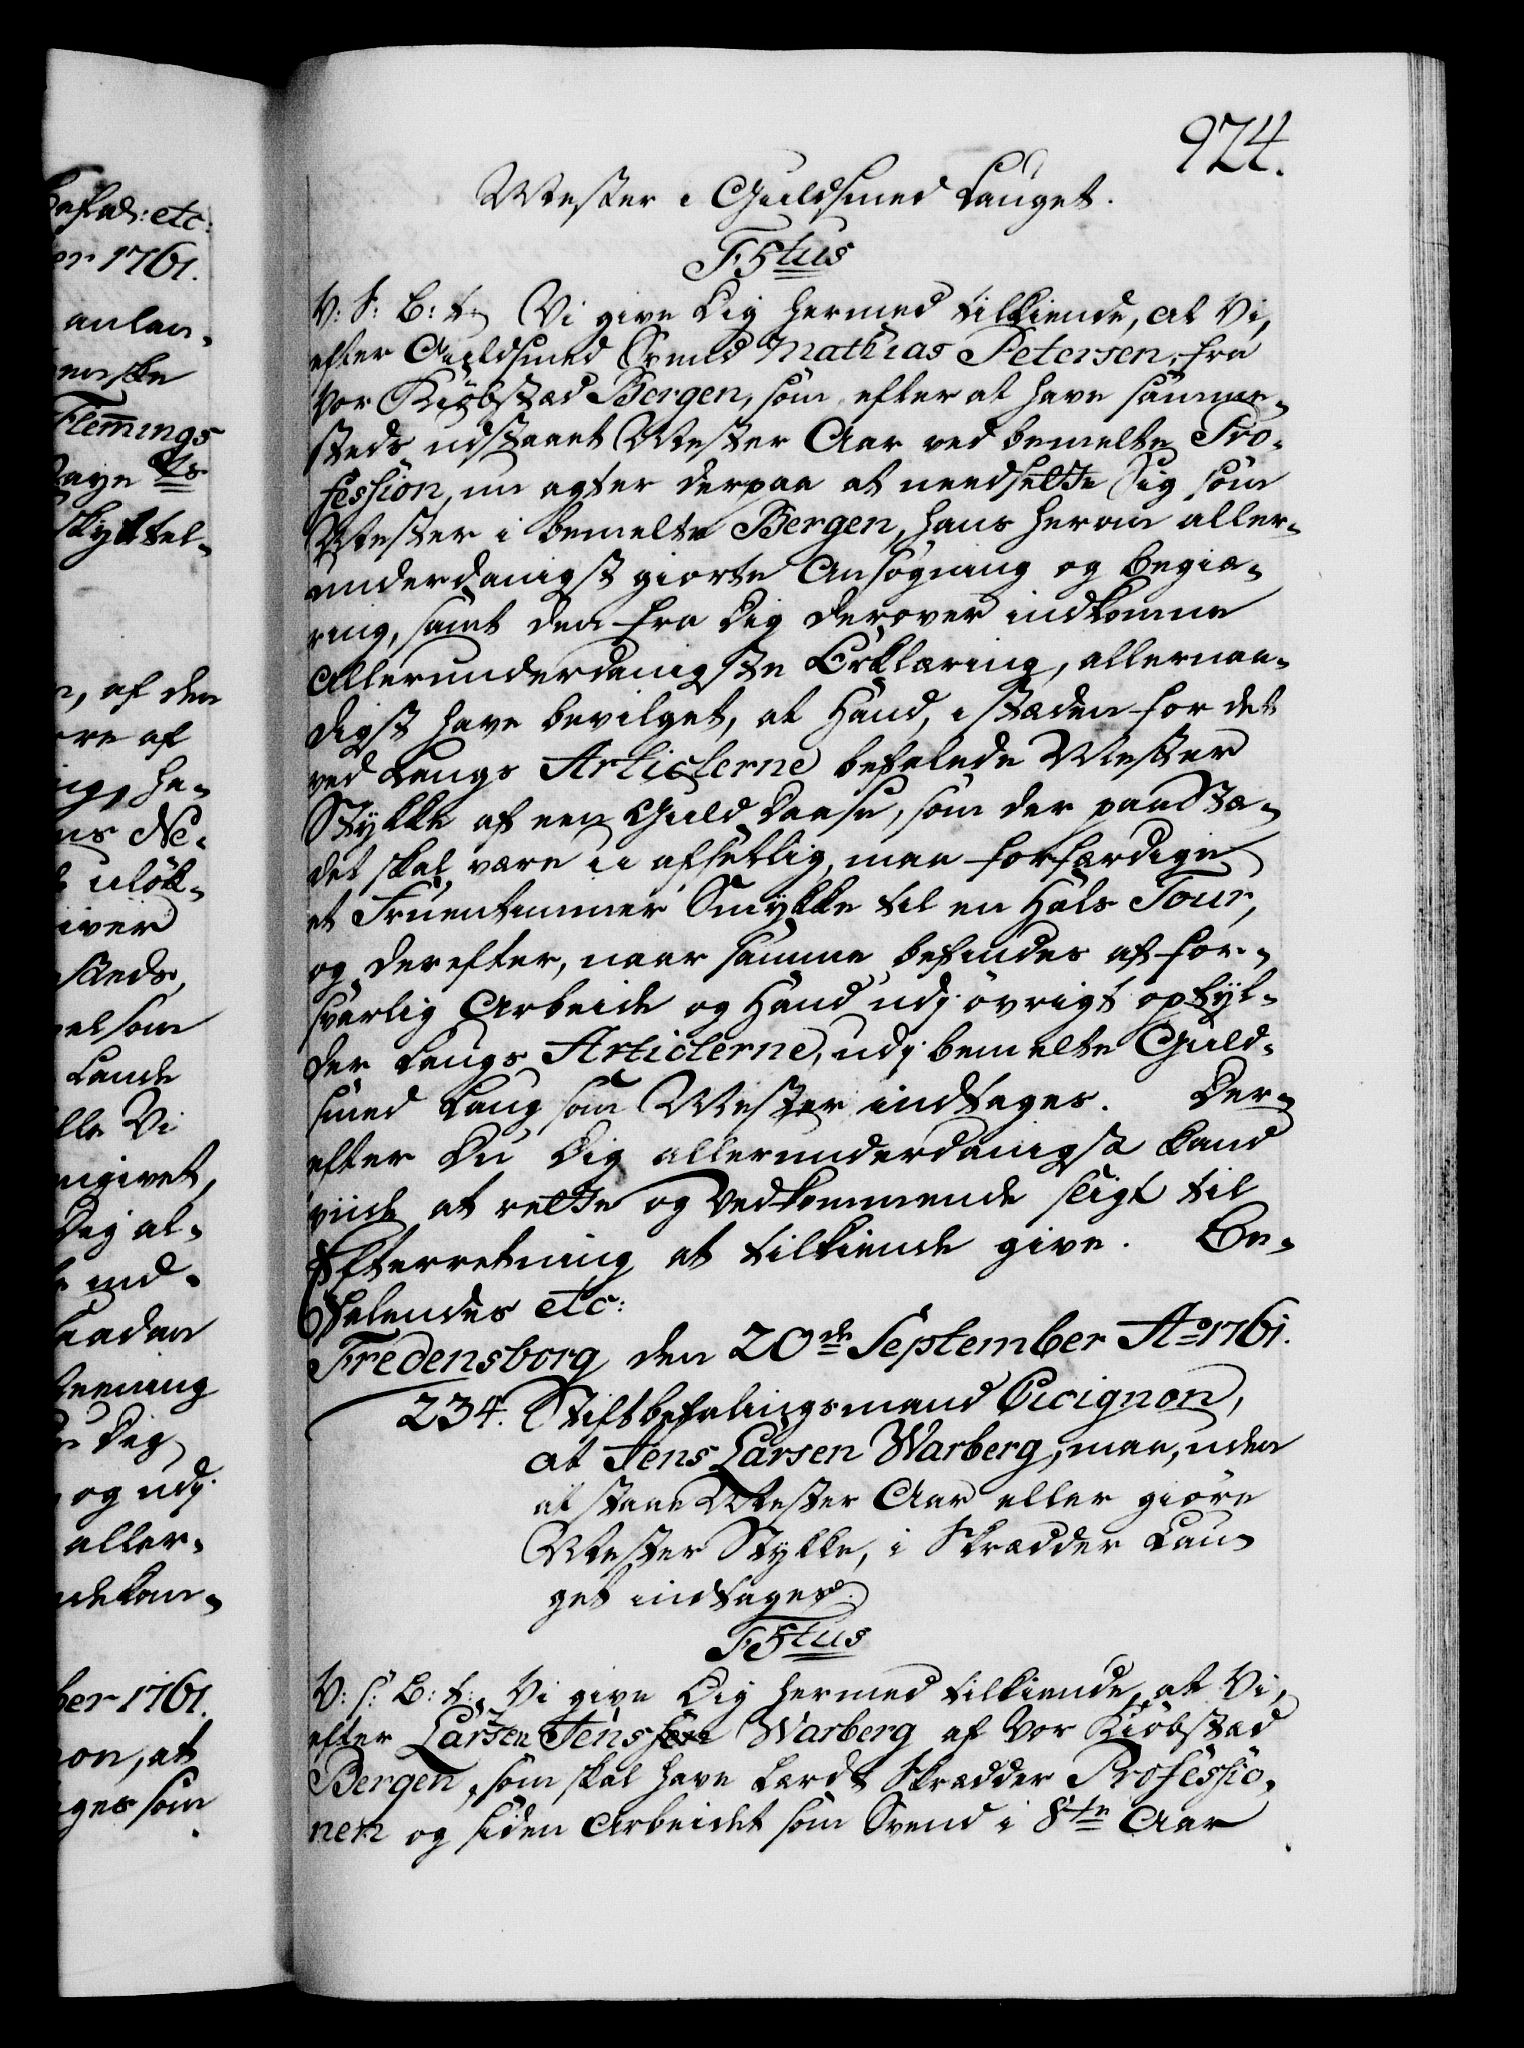 924.
Mester i Guldsmed Lauget.
F5tus
V: S: B: t: Vi give Dig hermed tilkiende, at Vi,
efter Guldsmed Svend Mathias Petersen, fra
Vor Kiøbstæd Bergen, som efter at have samme-
steds udstaaet Mester Aar ved bemelte Pro-
fession, nu agter derpaa at needsette Sig som
Mester i bemelte Bergen, hans herom aller-
underdanigst giorte Ansøgning og begiæ-
ring, samt den fra Dig derover indkomne
allerunderdanigste Erklæring, allernaa-
digst have bevilget, at Hand, i stæden for det
ved Laugs Articlerne befalede Mester
Stykke af een Guld Daase, som der paa Stæ-
det skal være u-afsettlig, maa forfærdige
et Fruentimmer Smykke til en Hals Tour,
og derefter, naar samme befindes af for-
svarlig Arbeide og Hand udj øvrigt opfyl-
der Laugs Articlerne, udj bemelte Guld-
smed Laug som Mester indtages. Der-
efter Du Dig allerunderdanigst kand
viide at rette og Vedkommende sligt til
Efterretning at tilkiende give. Be-
falendes etc:
Fredensborg den 20de September Ao 1761.
234. Stiftbefalingsmand Cicignon,
at Jens Larsen Warberg, maa, uden
at staae Mester Aar eller giøre
Mester Stykke, i Skrædder Lau-
get indtages.
F5tus
V: S: B: t: Vi give Dig hermed tilkiende, at Vi,
efter Larsen Jenssen Warberg af Vor Kiøbstæd
Bergen, som skal have lærdt Skrædder Professio-
nen og siden Arbeidet som Svend i 8te Aar
Befal: etc:
er 1761.
anlan-
enske
Flemings
skyttel-
n, af den
re af
ing, ha-
ns Ne-
iver
steds,
el som
Lande
lle Vi
ngivet,
Dig al-
ind-
saadan
Meening
Dig
og udj
aller-
ber 1761.
on, at
ges som